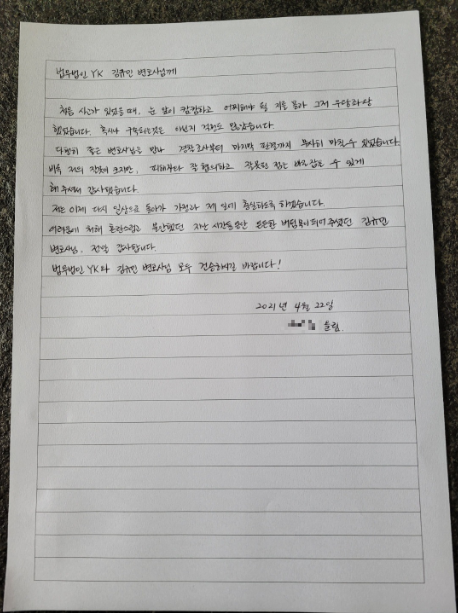 법무법인 YK 김규민 변호사님께
처음 사건이 있었을 때, 눈 앞이 캄캄하고 어찌해야 될 지를 몰라 그저 우왕좌왕
했었습니다. 혹시나 구속되는것은 아닌지 걱정도 많았습니다.
다행히 좋은 변호사님을 만나 경찰조사부터 마지막 판결까지 무사히 마칠 수 있었습니다.
비록 저의 잘못이 크지만, 피해자와 잘 합의하고 잘못된 점은 바로잡을 수 있게
해주셔서 감사했습니다.
저는 이제 다시 일상으로 돌아가 가정과 제 일에 충실하도록 하겠습니다.
어려움에 처해 혼란스럽고 불안했던 지난 시간동안 든든한 버팀목이 되어 주셨던 김규민
변호사님, 정말 감사합니다.
법무법인 YK와 김규민 변호사님 모두 건승하시길 바랍니다!
2021년 4월 22일
올림